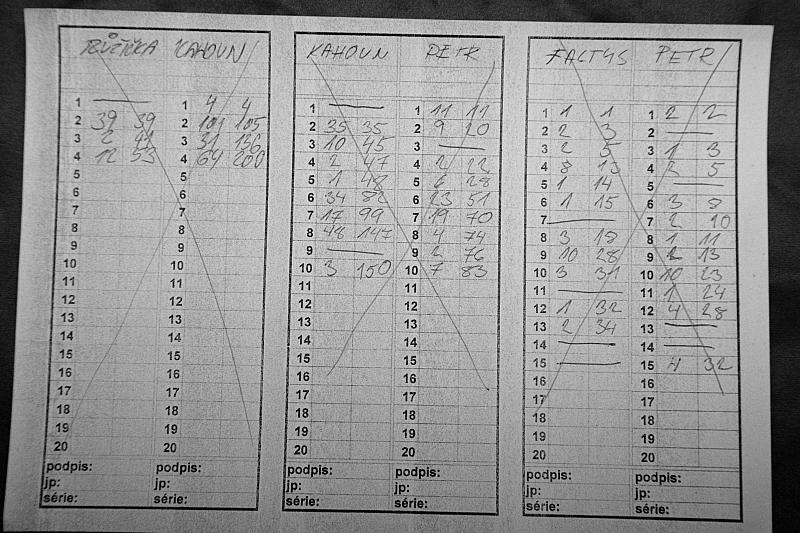 RŮŽIČKA KAHOUN
1 — 1 4 4
2 39 39 2 101 105
3 2 41 3 31 136
4 12 53 4 64 200
5 5
6 6
7 7
8 8
9 9
10 10
11 11
12 12
13 13
14 14
15 15
16 16
17 17
18 18
19 19
20 20
podpis: podpis:
jp: jp:
série: série:
KAHOUN PETR
1 — 1 11 11
2 35 35 2 9 20
3 10 45 3 —
4 2 47 4 2 22
5 1 48 5 6 28
6 34 82 6 23 51
7 17 99 7 19 70
8 48 147 8 4 74
9 — 9 2 76
10 3 150 10 7 83
11 11
12 12
13 13
14 14
15 15
16 16
17 17
18 18
19 19
20 20
podpis: podpis:
jp: jp:
série: série:
FALTYS PETR
1 1 1 1 2 2
2 2 3 2 —
3 2 5 3 1 3
4 8 13 4 2 5
5 1 14 5 —
6 1 15 6 3 8
7 — 7 2 10
8 3 18 8 1 11
9 10 28 9 2 13
10 3 31 10 10 23
11 — 11 1 24
12 1 32 12 4 28
13 2 34 13 —
14 — 14 —
15 — 15 4 32
16 16
17 17
18 18
19 19
20 20
podpis: podpis:
jp: jp:
série: série: